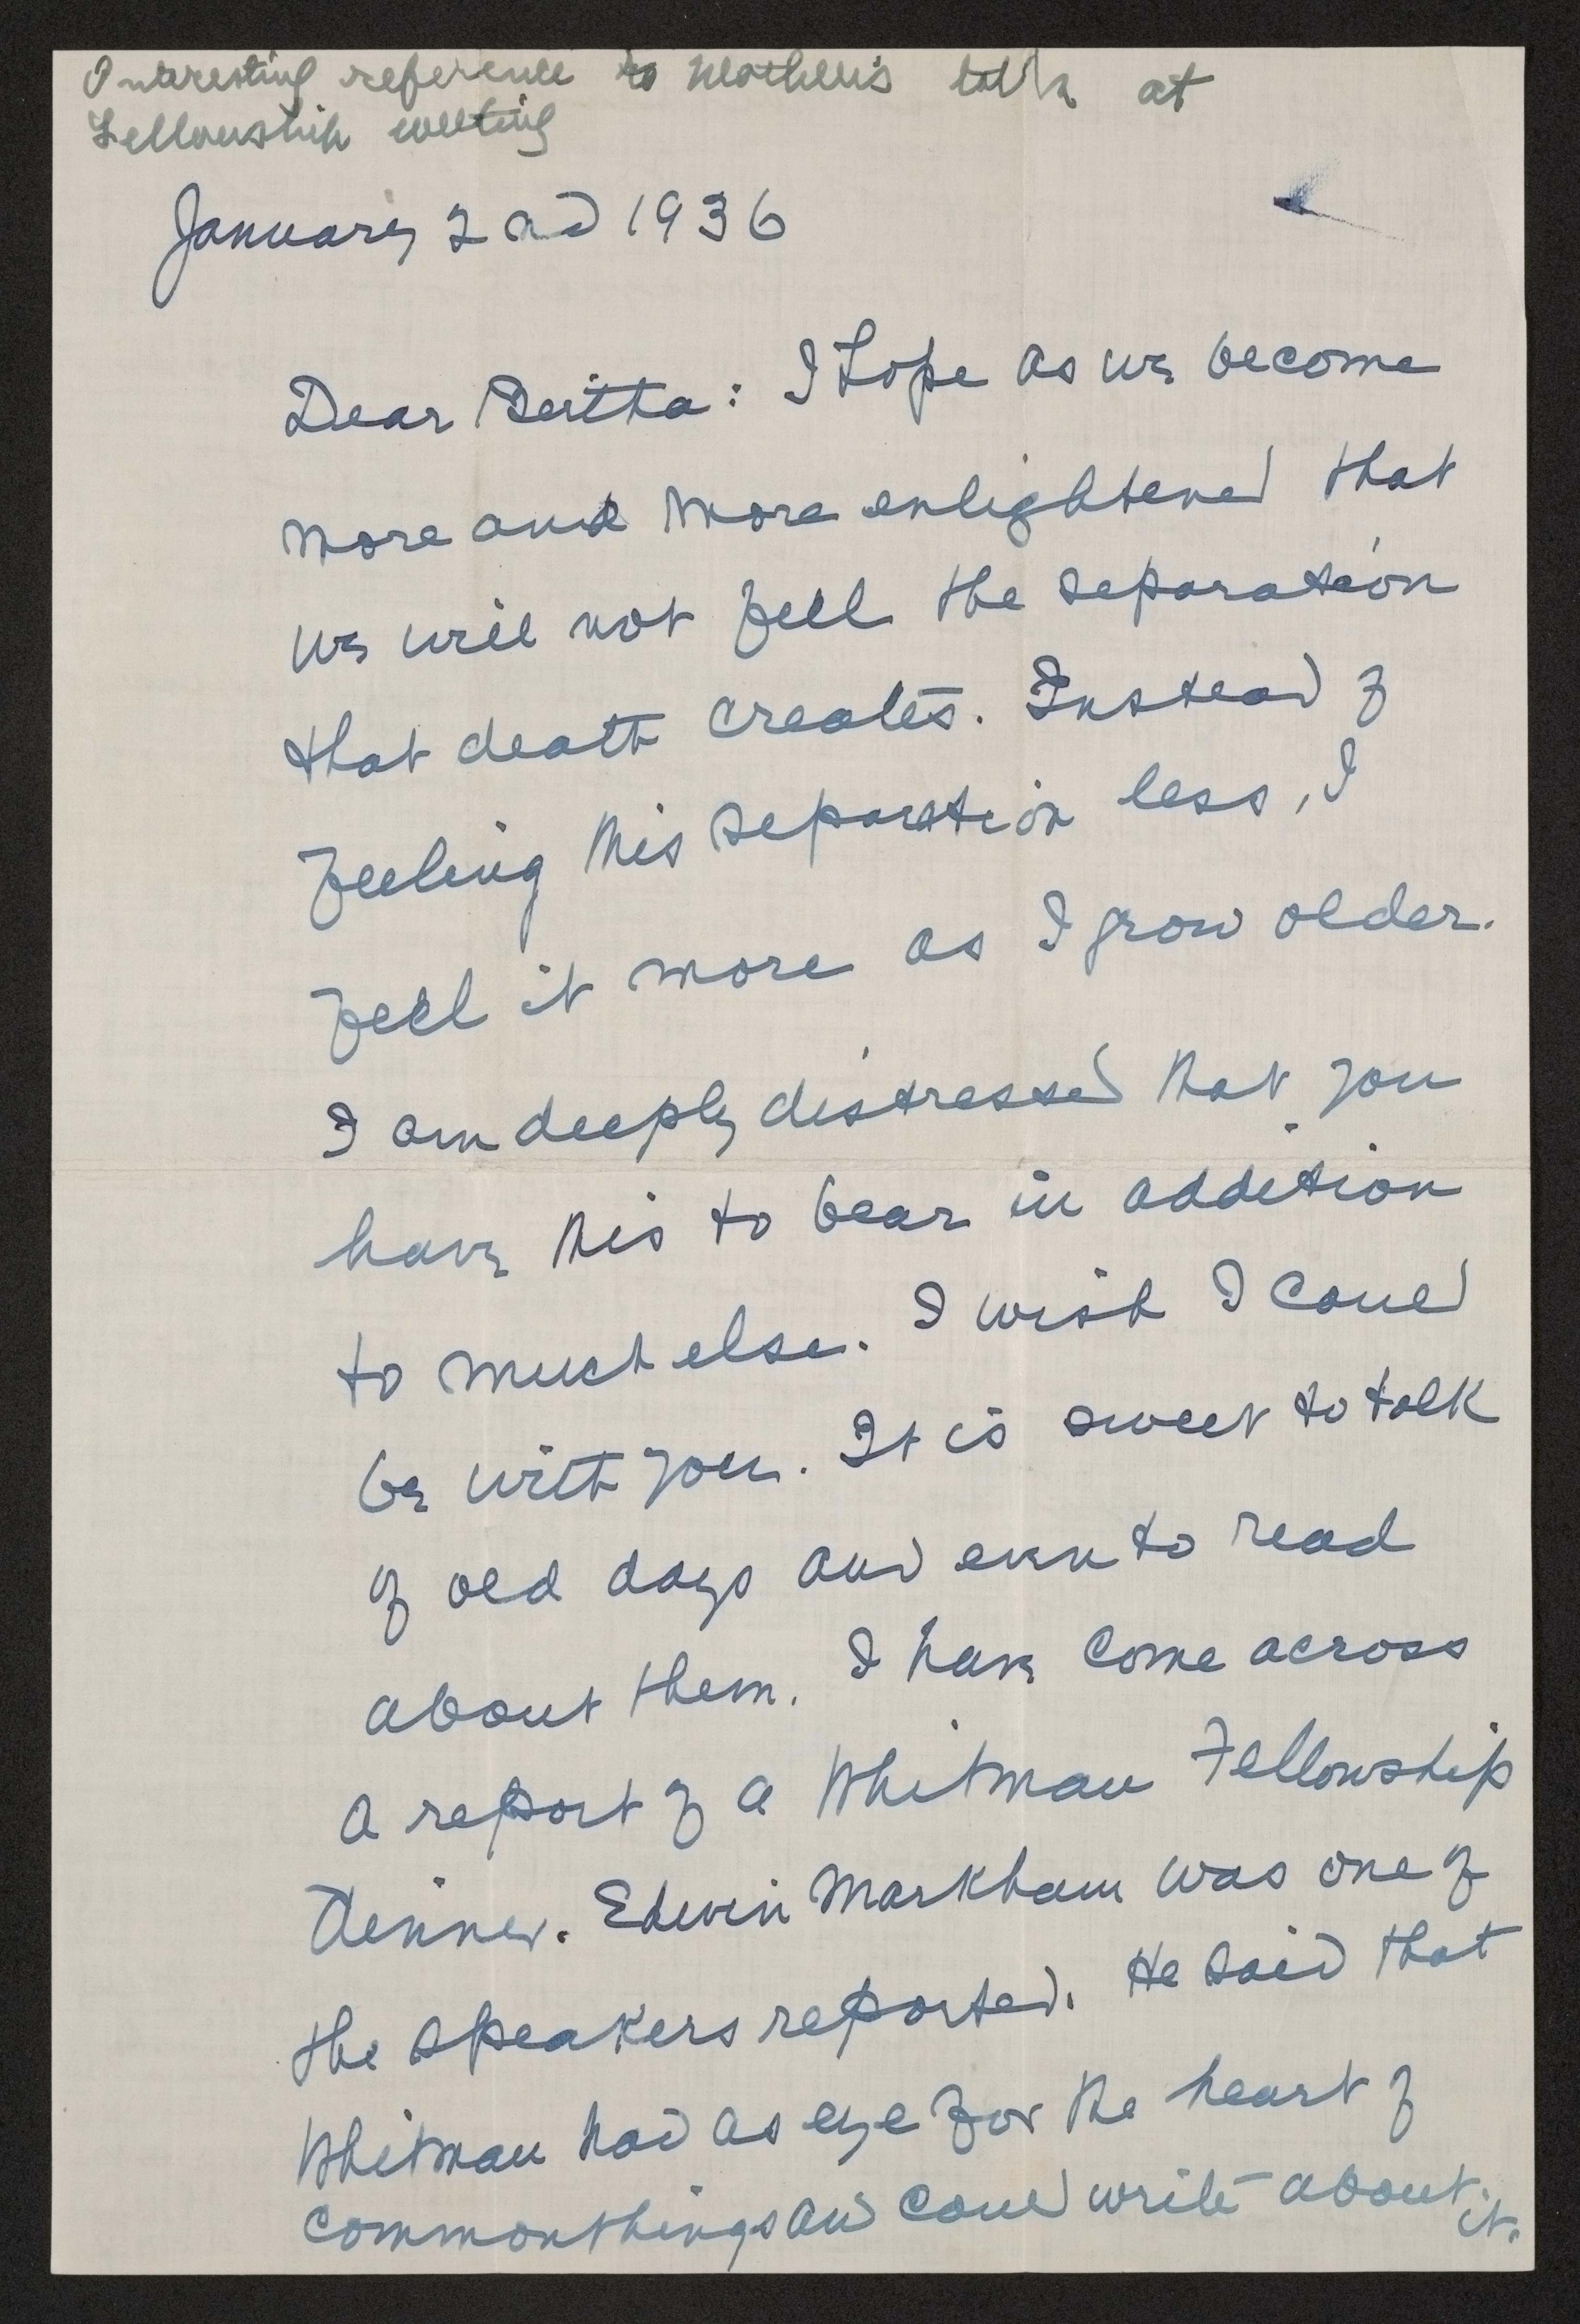 Interesting reference to Mother's talk at
Fellowship meeting
January 2nd 1936
Dear Bertha: I hope as we become
more and more enlightened that
we will not feel the separation
that death creates. Instead of
feeling this separation less, I
feel it more as I grow older.
I am deeply distressed that you
have this to bear in addition
to much else. I wish I could
be with you. It is sweet to talk
of old days and even to read
about them. I have come across
a report of a Whitman Fellowship
Dinner. Edwin Markham was one of
the speakers reported. He said that
Whitman had as eye for the heart of
common things and could write about it.